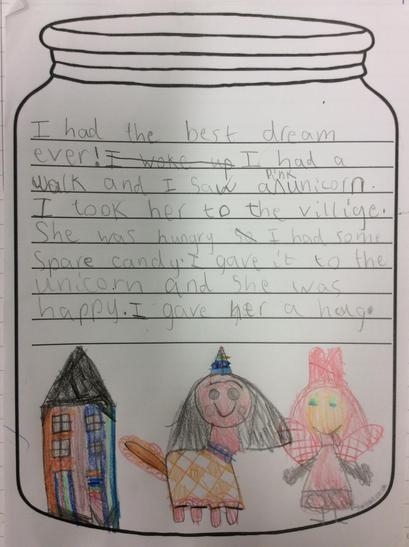 I had the best dream
ever! I woke up I had a
walk and I saw a pink unicorn.
I took her to the villige.
She was hungry I had some
Spare candy. I gave it to the
unicorn and she was
happy. I gave her a hug.